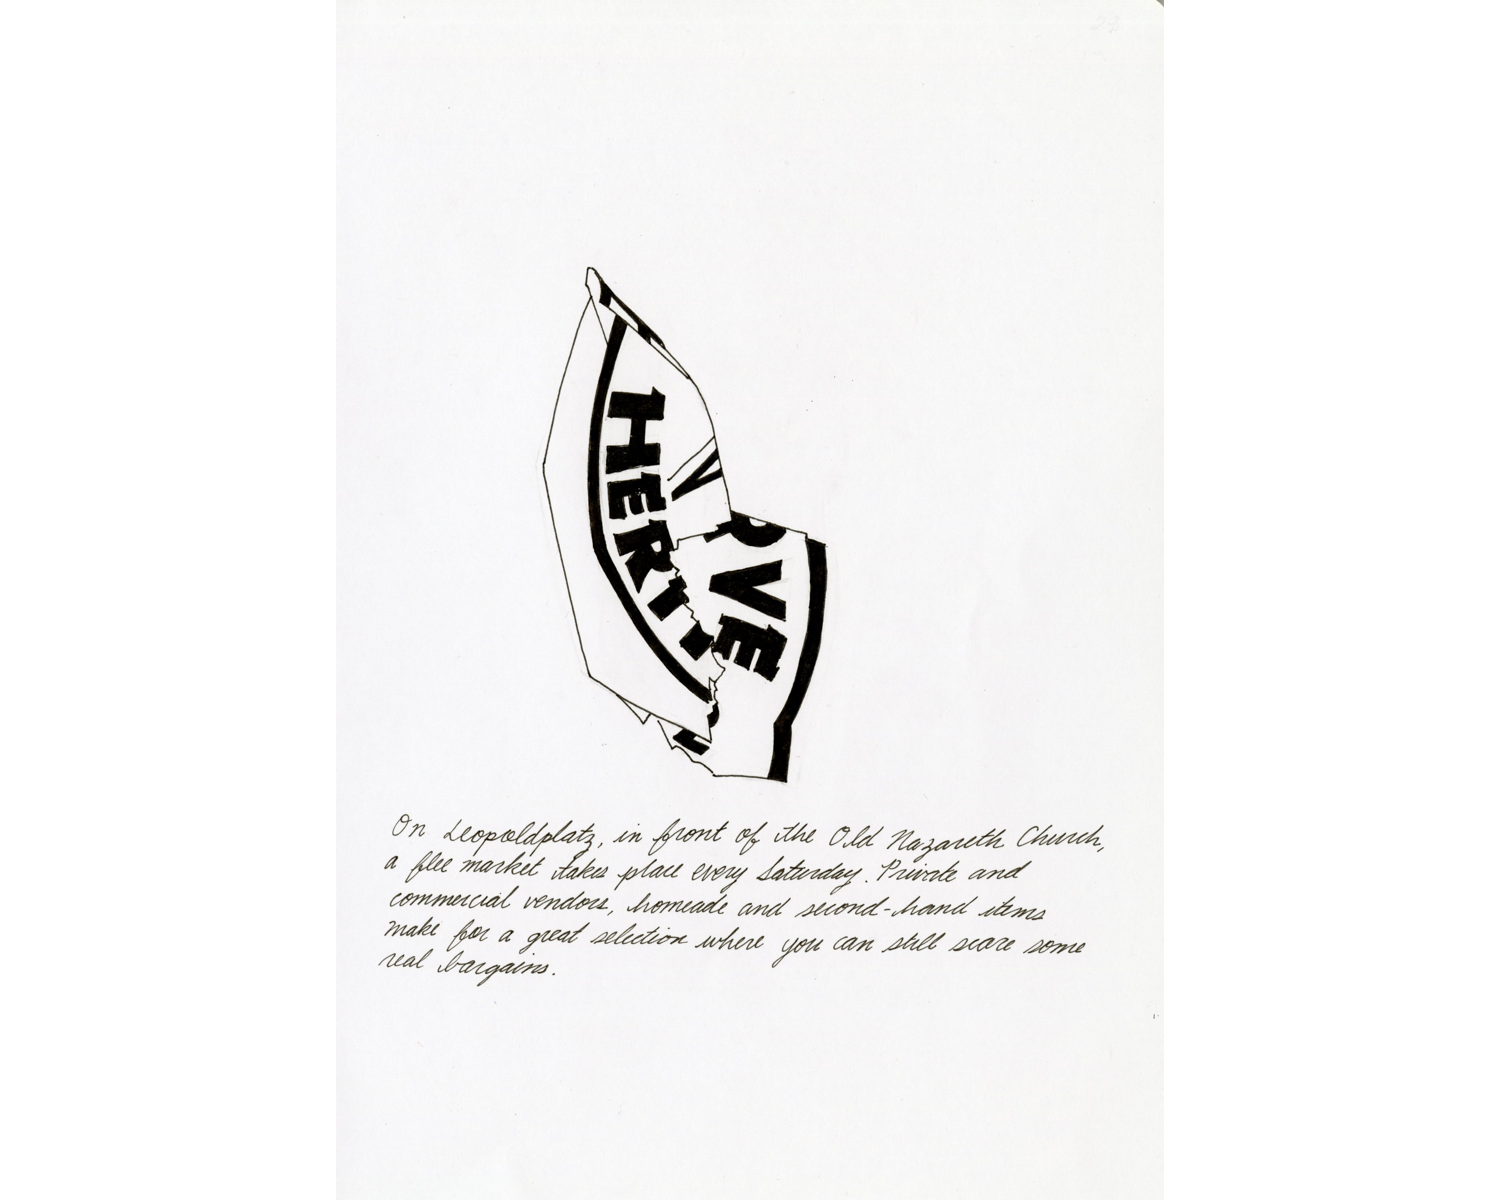 HERI
V
RVE
On Leopoldplatz, in front of the Old Nazareth Church,
a flee market takes place every Saturday. Private and
commercial vendors, homeade and second-hand items
make for a great selection where you can still scare some
real bargains.